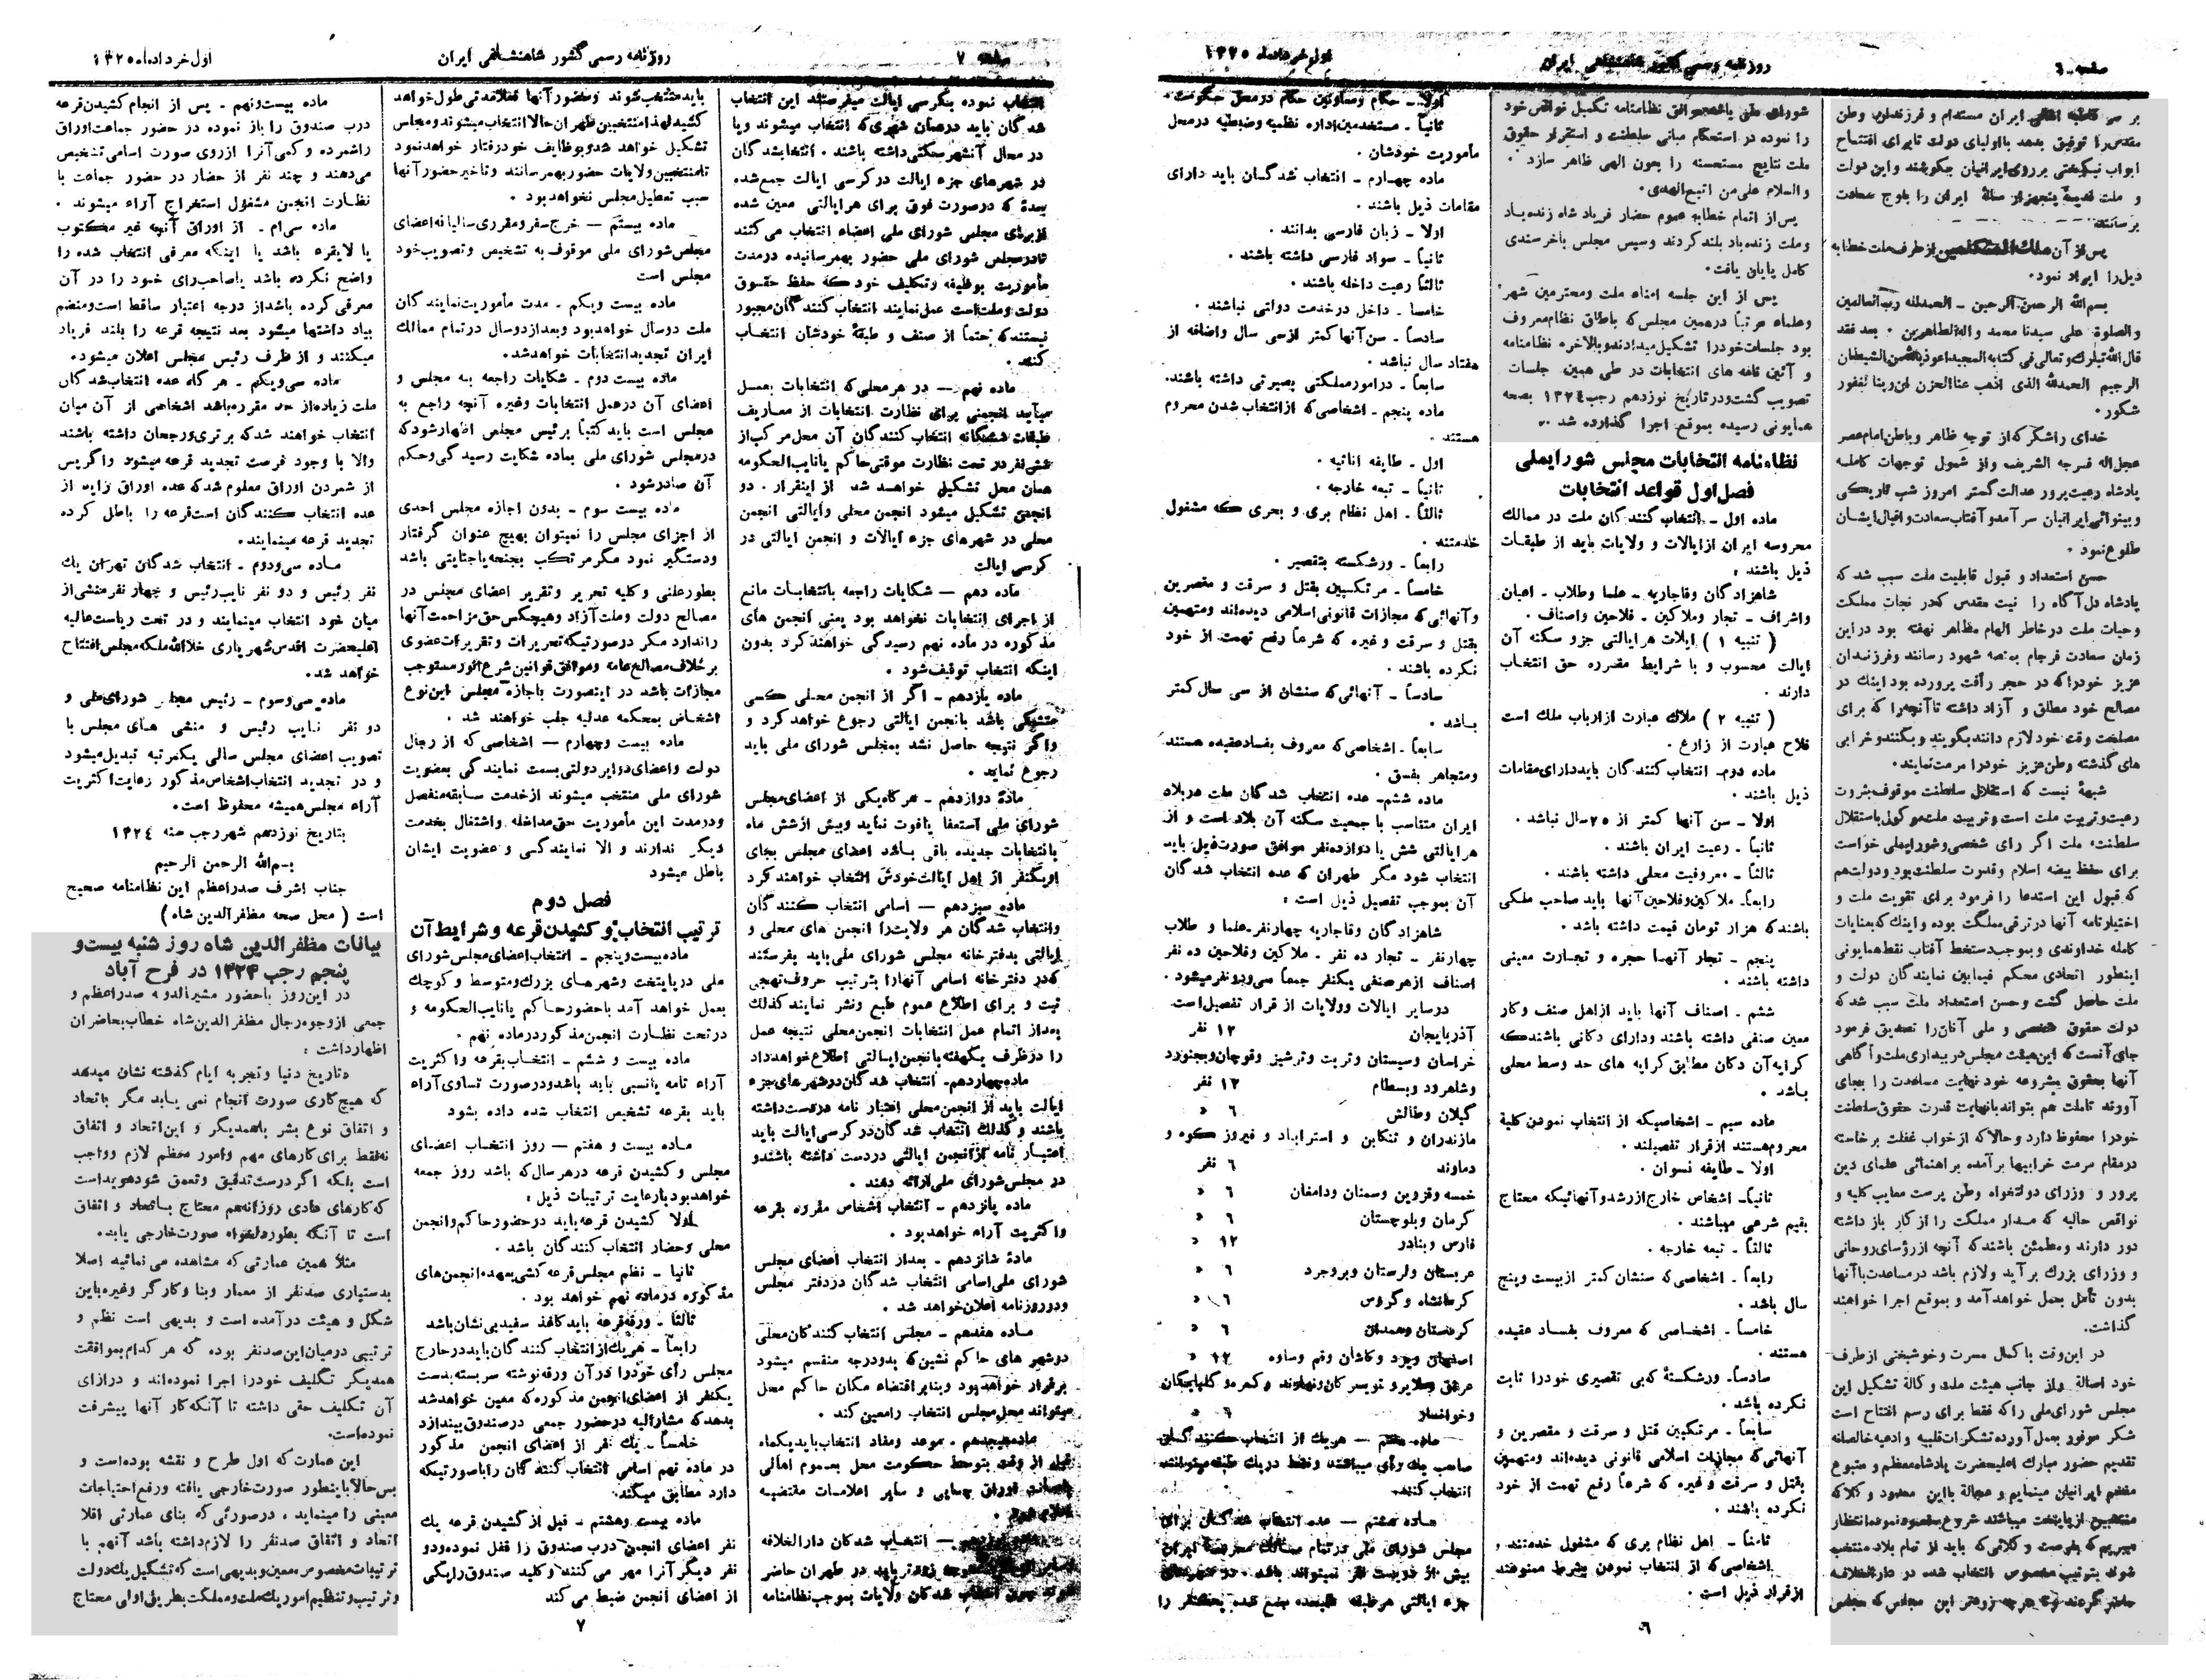 صفحه ـ ٦
روزنامه رسمی کشور شاهنشاهی ایران
اول خرداد ماه ۱۳۲۵
بر سر کافه اهالی ایران مستدام و فرزندان وطن
مقدس را توفیق بدهد با اولیای دولت تا برای افتتاح
ابواب نیکبختی بر روی ایرانیان بکوشند و این دولت
و ملت قدیمهٔ پنجهزار سالهٔ ایران را باوج سعادت
برسانند
پس از آن ملک المتکلمین از طرف ملت خطابه
ذیل را ایراد نمود.
بسم‌الله الرحمن الرحیم ـ الحمدلله رب العالمین
والصلوة علی سیدنا محمد و آله الطاهرین . بعد فقد
قال‌الله تبارک و تعالی فی کتابه المجید اعوذ بالله من الشیطان
الرجیم الحمدلله الذی اذهب عنا الحزن ان ربنا لغفور
شکور .
خدای را شکر که از توجه ظاهر و باطن امام عصر
عجل‌اله فرجه الشریف و از شمول توجهات کامله
پادشاه رعیت پرور عدالت گستر امروز شب تاریکی
و بینوائی ایرانیان سر آمد و آفتاب سعادت و اقبال ایشان
طلوع نمود .
حسن استعداد و قبول قابلیت ملت سبب شد که
پادشاه دل آگاه را نیت مقدس که در نجات مملکت
و حیات ملت در خاطر الهام مظاهر نهفته بود در این
زمان سعادت فرجام بمنصه شهود رسانند و فرزندان
عزیز خود را که در حجر رأفت پرورده بود اینک در
مصالح خود مطلق و آزاد داشته تا آنچه را که برای
مصلحت وقت خود لازم دانند بگویند و بکنند و خرابی
های گذشته وطن عزیز خود را مرمت نمایند.
شبهۀ نیست که استقلال سلطنت موقوف بثروت
رعیت و تربیت ملت است و تربیت ملت موکول باستقلال
سلطنت، ملت اگر رای شخصی و شورایملی خواست
برای حفظ بیضه اسلام و قدرت سلطنت بود و دولت هم
که قبول این استدعا را فرمود برای تقویت ملت و
اختیار نامه آنها در ترقی مملکت بوده و اینک که بعنایات
کامله خداوندی و بموجب دستخط آفتاب نقط همایونی
اینطور اتحادی محکم فیمابین نمایندگان دولت و
ملت حاصل گشت و حسن استعداد ملت سبب شد که
دولت حقوق شخصی و ملی آنان را تصدیق فرمود
جای آنست که این هیئت مجلس در بیداری ملت و آگاهی
آنها بحقوق مشروعه خود نهایت مساعدت را بجای
آورند تا ملت هم بتواند با نهایت قدرت حقوق سلطنت
خود را محفوظ دارد و حالا که از خواب غفلت برخاسته
در مقام مرمت خرابیها بر آمده براهنمائی علمای دین
پرور و وزرای دولتخواه وطن پرست معایب کلیه و
نواقص حالیه که مدار مملکت را از کار باز داشته
دور دارند و مطمئن باشند که آنچه از رؤسای روحانی
و وزرای بزرک بر آید و لازم باشد در مساعدت با آنها
بدون تأمل بعمل خواهد آمد و بموقع اجرا خواهند
گذاشت.
در این وقت با کمال مسرت و خوشبختی از طرف
خود اصالة و از جانب هیئت ملت و کالة تشکیل این
مجلس شورای ملی را که فقط برای رسم افتتاح است
شکر موفور بعمل آورده تشکرات قلبیه و ادعیه خالصانه
تقدیم حضور مبارک اعلیحضرت پادشاه معظم و متبوع
مفخم ایرانیان مینمایم و عجالة با این معدود وکلا که
منتخبین از پایتخت میباشند شروع بمقصود نموده انتظار
میبریم که بفرصت وکلائی که باید از تمام بلاد منتخب
شوند بترتیب مخصوص انتخاب شده در دارالخلافه
حاضر گردند و تا هر چه زودتر این مجلس که مجلس
شورای ملی باشد موافق نظامنامه تکمیل نواقص خود
را نموده در استحکام مبانی سلطنت و استقرار حقوق
ملت نتایج مستحسنه را بعون الهی ظاهر سازد .
والسلام علی من اتبع الهدی.
پس از اتمام خطابه عموم حضار فریاد شاه زنده باد
و ملت زنده باد بلند کردند و سپس مجلس با خرسندی
کامل پایان یافت.
پس از این جلسه امناء ملت و محترمین شهر
و علماء مرتباً در همین مجلس که باطاق نظام معروف
بود جلسات خود را تشکیل میدادند و بالاخره نظامنامه
و آئین نامه های انتخابات در طی همین جلسات
تصویب گشت و در تاریخ نوزدهم رجب ۱۳۲٤ بصحه
همایونی رسیده بموقع اجرا گذارده شد ..
نظامنامه انتخابات مجلس شورایملی
فصل اول قواعد انتخابات
ماده اول ـ انتخاب کنندگان ملت در ممالک
محروسه ایران از ایالات و ولایات باید از طبقات
ذیل باشند :
شاهزادگان و قاجاریه ـ علما و طلاب ـ اعیان
و اشراف ـ تجار و ملاکین ـ فلاحین و اصناف .
( تنبیه ۱ ) ایلات هر ایالتی جزو سکنه آن
ایالت محسوب و با شرایط مقرره حق انتخاب
دارند .
( تنبیه ۲ ) ملاک عبارت از ارباب ملک است
فلاح عبارت از زارع .
ماده دوم ـ انتخاب کنندگان باید دارای مقامات
ذیل باشند .
اولا ـ سن آنها کمتر از ۲۵ سال نباشد .
ثانیاً ـ رعیت ایران باشند .
ثالثاً ـ معروفیت محلی داشته باشند .
رابعاً ـ ملاکین و فلاحین آنها باید صاحب ملکی
باشند که هزار تومان قیمت داشته باشد .
پنجم ـ تجار آنها حجره و تجارت معینی
داشته باشند .
ششم ـ اصناف آنها باید از اهل صنف و کار
معین صنفی داشته باشند و دارای دکانی باشند که
کرایه آن دکان مطابق کرایه های حد وسط محلی
باشد .
ماده سیم ـ اشخاصیکه از انتخاب نمودن کلیة
محروم هستند از قرار تفصیلند .
اولا ـ طایفه نسوان .
ثانیاً ـ اشخاص خارج از رشد و آنهائیکه محتاج
بقیم شرعی میباشند .
ثالثاً ـ تبعه خارجه .
رابعاً ـ اشخاصی که سنشان کمتر از بیست و پنج
سال باشد .
خامساً ـ اشخاصی که معروف بفساد عقیده
هستند .
سادساً ـ ورشکستهٔ که بی تقصیری خود را ثابت
نکرده باشد .
سابعاً ـ مرتکبین قتل و سرقت و مقصرین و
آنهائی که مجازات اسلامی قانونی دیده‌اند و متهمین
بقتل و سرقت و غیره که شرعاً رفع تهمت از خود
نکرده باشند .
ثامناً ـ اهل نظام بری که مشغول خدمتند ,
اشخاصی که از انتخاب نمودن بشرط ممنوعند
از قرار ذیل است .
اولا ـ حکام و معاونین حکام در محل حکومت .
ثانیاً ـ مستخدمین اداره نظمیه و ضبطیه در محل
مأموریت خودشان .
ماده چهارم ـ انتخاب شدگان باید دارای
مقامات ذیل باشند .
اولا ـ زبان فارسی بدانند .
ثانیاً ـ سواد فارسی داشته باشند .
ثالثاً رعیت داخله باشند .
خامساً ـ داخل در خدمت دولتی نباشند .
سادساً ـ سن آنها کمتر از سی سال و اضافه از
هفتاد سال نباشد .
سابعاً ـ در امور مملکتی بصیرتی داشته باشند.
ماده پنجم ـ اشخاصی که از انتخاب شدن محروم
هستند .
اول ـ طایفه اناثیه .
ثانیاً ـ تبعه خارجه .
ثالثاً ـ اهل نظام بری و بحری که مشغول
خدمتند .
رابعاً ـ ورشکسته بتقصیر .
خامساً ـ مرتکبین بقتل و سرقت و مقصرین
و آنهائی که مجازات قانونی اسلامی دیده‌اند و متهمین
بقتل و سرقت و غیره که شرعاً رفع تهمت از خود
نکرده باشند .
سادساً ـ آنهائی که سنشان از سی سال کمتر
باشد .
سابعاً ـ اشخاصی که معروف بفساد عقیده هستند
و متجاهر بفسق .
ماده ششم ـ عده انتخاب شدگان ملت در بلاد
ایران متناسب با جمعیت سکنه آن بلاد است و از
هر ایالتی شش یا دوازده نفر موافق صورت ذیل باید
انتخاب شود مگر طهران که عده انتخاب شدگان
آن بموجب تفصیل ذیل است :
شاهزادگان و قاجاریه چهار نفر ـ علما و طلاب
چهار نفر ـ تجار ده نفر . ملاکین و فلاحین ده نفر
اصناف از هر صنفی یکنفر جمعاً سی و دو نفر میشود .
در سایر ایالات و ولایات از قرار تفصیل است
آذربایجان ۱۲ نفر
خراسان و سیستان و تربت و ترشیز و قوچان و بجنورد
و شاهرود و بسطام ۱۲ نفر
گیلان و طالش ٦ «
مازندران و تنکابن و استراباد و فیروز کوه و
دماوند ٦ نفر
خمسه و قزوین و سمنان و دامغان ٦ «
کرمان و بلوچستان ٦ «
فارس و بنادر ۱۲ «
عربستان و لرستان و بروجرد ٦ «
کرمانشاه و گروس ٦ «
کردستان و همدان ٦ «
اصفهان و یزد و کاشان و قم و ساوه ۱۲ «
عراق و ملایر و تویسرکان و نهاوند و کمره و گلپایگان
و خوانسار ٦ «
ماده هفتم — هر یک از انتخاب کنندگان
صاحب یک رأی میباشند و فقط در یک طبقه میتوانند
انتخاب کنند.
ماده هشتم — عده انتخاب شدگان برای
مجلس شورای ملی در تمام ممالک محروسه ایران
بیش از دویست نفر نمیتواند باشد . در شهرهای
جزء ایالتی هر طبقه علیحده جمع شده یکنفر را
٦
صفحه ۷
روزنامه رسمی کشور شاهنشاهی ایران
اول خرداد ماه ۱۳۲۵
انتخاب نموده بکرسی ایالت میفرستند این انتخاب
شدگان باید در همان شهری که انتخاب میشوند و یا
در محال آنشهر سکنی داشته باشند . انتخابشدگان
در شهرهای جزء ایالت در کرسی ایالت جمع شده
بعدهٔ که در صورت فوق برای هر ایالتی معین شده
از برای مجلس شورای ملی اعضاء انتخاب می‌کنند
تا در مجلس شورای ملی حضور بهمرسانیده در مدت
مأموریت بوظیفه و تکلیف خود که حفظ حقوق
دولت و ملت است عمل نمایند انتخاب کنندگان مجبور
نیستند که حتماً از صنف و طبقهٔ خودشان انتخاب
کنند .
ماده نهم — در هر محلی که انتخابات بعمل
میآید انجمنی برای نظارت انتخابات از معاریف
طبقات ششگانه انتخاب کنندگان آن محل مرکب از
شش نفر در تحت نظارت موقتی حاکم یا نایب الحکومه
همان محل تشکیل خواهد شد از اینقرار . دو
انجمن تشکیل میشود انجمن محلی و ایالتی انجمن
محلی در شهرهای جزء ایالات و انجمن ایالتی در
کرسی ایالت
ماده دهم — شکایات راجعه بانتخابات مانع
از اجرای انتخابات نخواهد بود یعنی انجمن های
مذکوره در ماده نهم رسیدگی خواهند کرد بدون
اینکه انتخاب توقیف شود .
ماده یازدهم ـ اگر از انجمن محلی کسی
متشکی باشد بانجمن ایالتی رجوع خواهد کرد و
واگر نتیجه حاصل نشد بمجلس شورای ملی باید
رجوع نماید .
مادهٔ دوازدهم ـ هر گاه یکی از اعضای مجلس
شورای ملی استعفا یا فوت نماید و بیش از شش ماه
بانتخابات جدیده باقی باشد اعضای مجلس بجای
او یکنفر از اهل ایالت خودش انتخاب خواهند کرد
ماده سیزدهم — اسامی انتخاب کنندگان
و انتخاب شدگان هر ولایت را انجمن های محلی و
ایالتی بدفتر خانه مجلس شورای ملی باید بفرستند
که در دفتر خانه اسامی آنها را بترتیب حروف تهجی
ثبت و برای اطلاع عموم طبع و نشر نمایند کذلک
بعد از اتمام عمل انتخابات انجمن محلی نتیجه عمل
را در ظرف یکهفته بانجمن ایالتی اطلاع خواهد داد
ماده چهاردهم ـ انتخاب شدگان در شهرهای جزء
ایالت باید از انجمن محلی اعتبار نامه در دست داشته
باشند و کذلک انتخاب شدگان در کرسی ایالت باید
اعتبار نامه از انجمن ایالتی در دست داشته باشند و
در مجلس شورای ملی ارائه دهند .
ماده پانزدهم ـ انتخاب اشخاص مقرره بقرعه
و اکثریت آراء خواهد بود .
مادهٔ شانزدهم ـ بعد از انتخاب اعضای مجلس
شورای ملی اسامی انتخاب شدگان در دفتر مجلس
و در روزنامه اعلان خواهد شد .
ماده هفدهم ـ مجلس انتخاب کنندگان محلی
در شهر های حاکم نشین که بدو درجه منقسم میشود
برقرار خواهد بود و بنابر اقتضاء مکان حاکم محل
میتواند محل مجلس انتخاب را معین کند .
ماده هیجدهم ـ موعد و مفاد انتخاب باید یکماه
قبل از وقت بتوسط حکومت محل بعموم اهالی
اوراق چاپی و سایر اعلامات مقتضیه
اعلام شود .
— انتخاب شدگان دارالخلافه
زودتر باید در طهران حاضر
شوند چون انتخاب شدگان ولایات بموجب نظامنامه
باید منتخب شوند و حضور آنها فعلا مدتی طول خواهد
کشید لهذا منتخبین طهران حالا انتخاب میشوند و مجلس
تشکیل خواهد شد و بوظایف خود رفتار خواهد نمود
تا منتخبین ولایات حضور بهمرسانند و تاخیر حضور آنها
سبب تعطیل مجلس نخواهد بود .
ماده بیستم — خرج سفر و مقرری سالیانه اعضای
مجلس شورای ملی موقوف به تشخیص و تصویب خود
مجلس است
ماده بیست و یکم ـ مدت مأموریت نمایندگان
ملت دو سال خواهد بود و بعد از دو سال در تمام ممالک
ایران تجدید انتخابات خواهد شد.
ماده بیست دوم ـ شکایات راجعه به مجلس و
اعضای آن در عمل انتخابات و غیره آنچه راجع به
مجلس است باید کتباً برئیس مجلس اظهار شود که
در مجلس شورای ملی بماده شکایت رسیدگی و حکم
آن صادر شود .
ماده بیست سوم ـ بدون اجازه مجلس احدی
از اجزای مجلس را نمیتوان بهیچ عنوان گرفتار
و دستگیر نمود مگر مرتکب بجنحه یا جنایتی باشد
بطور علنی و کلیه تحریر و تقریر اعضای مجلس در
مصالح دولت و ملت آزاد و هیچکس حق مزاحمت آنها
را ندارد مگر در صورتیکه تحریرات و تقریرات عضوی
بر خلاف مصالح عامه و موافق قوانین شرع انور مستوجب
مجازات باشد در اینصورت باجازه مجلس این نوع
اشخاص بمحکمه عدلیه جلب خواهند شد .
ماده بیست و چهارم — اشخاصی که از رجال
دولت و اعضای دوایر دولتی بسمت نمایندگی بعضویت
شورای ملی منتخب میشوند از خدمت سابقه منفصل
و در مدت این مأموریت حق مداخله و اشتغال بخدمت
دیگر ندارند و الا نمایندگی و عضویت ایشان
باطل میشود
فصل دوم
ترتیب انتخاب و کشیدن قرعه و شرایط آن
ماده بیست و پنجم ـ انتخاب اعضای مجلس شورای
ملی در پایتخت و شهر های بزرک و متوسط و کوچک
بعمل خواهد آمد باحضور حاکم یا نایب الحکومه و
در تحت نظارت انجمن مذکور در ماده نهم .
ماده بیست و ششم ـ انتخاب بقرعه و اکثریت
آراء تامه یا نسبی باید باشد و در صورت تساوی آراء
باید بقرعه تشخیص انتخاب شده داده بشود
ماده بیست و هفتم — روز انتخاب اعضای
مجلس و کشیدن قرعه در هر سال که باشد روز جمعه
خواهد بود با رعایت ترتیبات ذیل :
اولا کشیدن قرعه باید در حضور حاکم و انجمن
محلی و حضار انتخاب کنندگان باشد .
ثانیا ـ نظم مجلس قرعه کشی بعهده انجمن های
مذکوره در ماده نهم خواهد بود .
ثالثا ـ ورقه قرعه باید کاغذ سفید بی نشان باشد
رابعاً ـ هر یک از انتخاب کنندگان باید در خارج
مجلس رأی خود را در آن ورقه نوشته سربسته بدست
یکنفر از اعضای انجمن مذکوره که معین خواهد شد
بدهد که مشارالیه در حضور جمعی در صندوق بیندازد
خامساً ـ یک نفر از اعضای انجمن مذکور
در ماده نهم اسامی انتخاب کنندگان را با صورتیکه
دارد مطابق میکند.
ماده بیست و هشتم ـ قبل از کشیدن قرعه یک
نفر اعضای انجمن درب صندوق را قفل نموده و دو
نفر دیگر آنرا مهر می کنند و کلید صندوق را یکی
از اعضای انجمن ضبط می کند
ماده بیست و نهم ـ پس از انجام کشیدن قرعه
درب صندوق را باز نموده در حضور جماعت اوراق
را شمرده و کمی آنرا از روی صورت اسامی تشخیص
می‌دهند و چند نفر از حضار در حضور جماعت با
نظارت انجمن مشغول استخراج آراء میشوند .
ماده سی‌ام . از اوراق آنچه غیر مکتوب
یا لایقرء باشد یا اینکه معرفی انتخاب شده را
واضح نکرده باشد یا صاحب رای خود را در آن
معرفی کرده باشد از درجه اعتبار ساقط است و منضم
بیاد داشتها میشود بعد نتیجه قرعه را بلند فریاد
میکنند و از طرف رئیس مجلس اعلان میشود.
ماده سی و یکم . هر گاه عده انتخاب شدگان
ملت زیاده از حد مقرره باشد اشخاصی از آن میان
انتخاب خواهند شد که برتری و رجحان داشته باشند
والا با وجود فرصت تجدید قرعه میشود و اگر پس
از شمردن اوراق معلوم شد که عده اوراق زاید از
عده انتخاب کنندگان است قرعه را باطل کرده
تجدید قرعه مینمایند.
ماده سی و دوم . انتخاب شدگان تهران یک
نفر رئیس و دو نفر نایب رئیس و چهار نفر منشی از
میان خود انتخاب مینمایند و در تحت ریاست عالیه
اعلیحضرت اقدس شهریاری خلدالله ملکه مجلس افتتاح
خواهد شد.
ماده سی و سوم ـ رئیس مجلس شورای ملی و
دو نفر نایب رئیس و منشی های مجلس با
تصویب اعضای مجلس سالی یکمرتبه تبدیل میشود
و در تجدید انتخاب اشخاص مذکور رعایت اکثریت
آراء مجلس همیشه محفوظ است.
بتاریخ نوزدهم شهر رجب سنه ۱۳۲٤
بسم‌الله الرحمن الرحیم
جناب اشرف صدراعظم این نظامنامه صحیح
است ( محل صحه مظفرالدین شاه )
بیانات مظفر الدین شاه روز شنبه بیست و
پنجم رجب ۱۳۲۴ در فرح آباد
در این روز باحضور مشیرالدوله صدراعظم و
جمعی از وجوه رجال مظفرالدین شاه خطاب بحاضران
اظهار داشت :
«تاریخ دنیا و تجربه ایام گذشته نشان میدهد
که هیچ کاری صورت انجام نمی یابد مگر باتحاد
و اتفاق نوع بشر با همدیگر و این اتحاد و اتفاق
نه فقط برای کارهای مهم و امور معظم لازم و واجب
است بلکه اگر درست تدقیق و تعمق شود هویداست
که کارهای عادی روزانه هم محتاج باتحاد و اتفاق
است تا آنکه بطور دلخواه صورت خارجی یابد.
مثلاً همین عمارتی که مشاهده می نمائید اصلا
بدستیاری صد نفر از معمار و بنا و کارگر و غیره باین
شکل و هیئت در آمده است و بدیهی است نظم و
ترتیبی در میان این صد نفر بوده که هر کدام بموافقت
همدیگر تکلیف خود را اجرا نموده‌اند و در ازای
آن تکلیف حقی داشته تا آنکه کار آنها پیشرفت
نموده است.
این عمارت که اول طرح و نقشه بوده است و
پس حالا باینطور صورت خارجی یافته و رفع احتیاجات
معینی را مینماید ، در صورتی که بنای عمارتی اقلا
اتحاد و اتفاق صد نفر را لازم داشته باشد آنهم با
ترتیبات مخصوص معین و بدیهی است که تشکیل یک دولت
و ترتیب و تنظیم امور یک ملت و مملکت بطریق اولی محتاج
۷